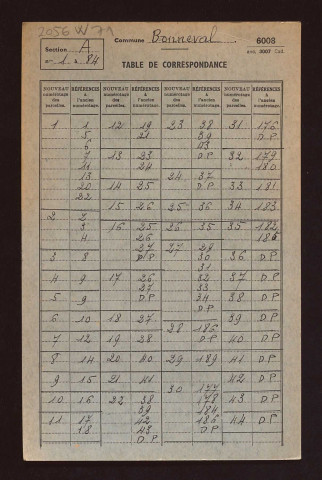 2056 W 79
Section A
nos 1 à 84
Commune Bonneval
6008
TABLE DE CORRESPONDANCE
NOUVEAU numérotage des parcelles. RÉFÉRENCES à l'ancien numérotage. NOUVEAU numérotage des parcelles. RÉFÉRENCES à l'ancien numérotage. NOUVEAU numérotage des parcelles. RÉFÉRENCES à l'ancien numérotage. NOUVEAU numérotage des parcelles. RÉFÉRENCES à l'ancien numérotage.
1 1 12 19 23 38 31 176
5 21 39 D.P
6 43
7 13 23 D.P 32 179
11 24 180
13 24 37
20 14 25 D.P 33 181
22
15 26 25 36 34 183
2 2
3 16 25 26 35 35 182
4 26 185
27 27 29
3 8 D.P 30 36 D.P
31
4 9 17 26 32 37 D.P
27 33
5 9 D.P 34 38 D.P
D.P
6 10 18 27 39 D.P
28 186
7 12 19 28 D.P 40 D.P
8 14 20 40 29 189 41 D.P
9 15 21 41 42 D.P
30 177
10 16 22 38 178 43 D.P
39 184
11 17 42 D.P 44 D.P
18 43
D.P